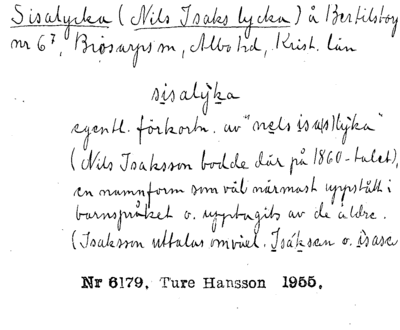 Sisalycka (Nils Isaks lycka) å Bertilstorp
nr 6⁷, Brösarps sn, Albo hd, Krist. län
sisalýka
egentl. förkortn. av "nels isa(s)lýka"
(Nils Isaksson bodde där på 1860-talet),
en namnform som väl närmast uppstått i
barnspråket o. upptagits av de äldre.
(Isaksson uttalas omväxl. Isáksen o. isase
Nr 6179. Ture Hansson 1955.